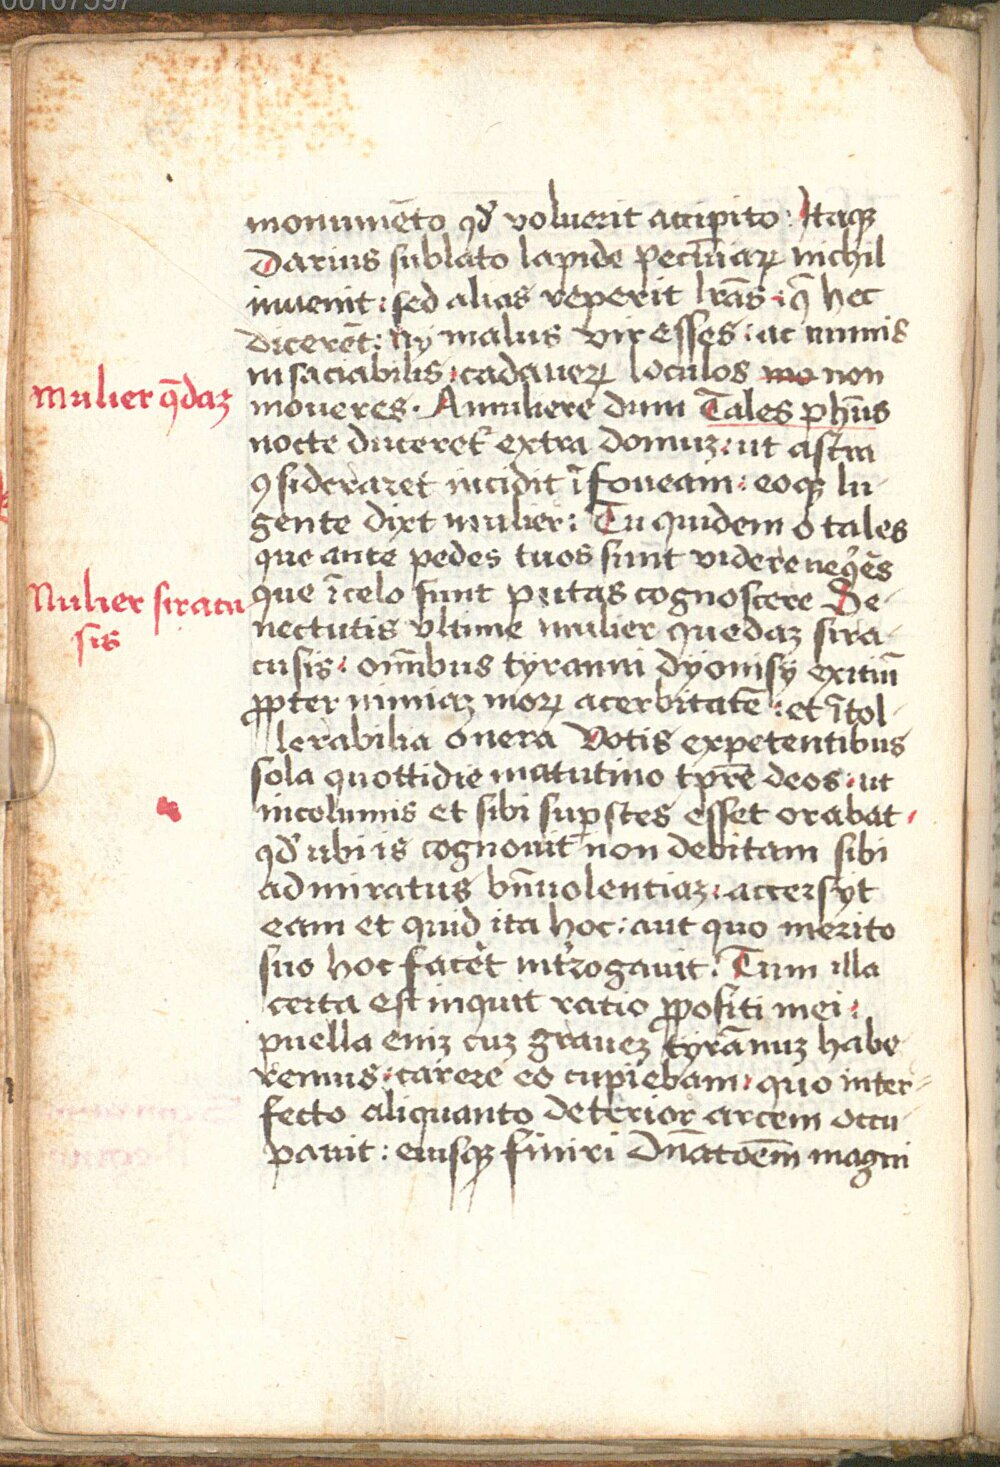 monumēto qđ voluerit accipito: Itaqꝫ
Darius sublato lapide pecuniaꝝ nichil
inuenit: sed alias reperit lrās: q̄ hec
dicerēt: Ny malus vir esses: ac nimis
insaciabilis: cadaueꝝ loculos mo non
Mulier q̄daꝫ
moueres. A muliere dum Tales phūs
nocte duceret᷑ extra domuꝫ: ut astra
ꝯsideraret incidit ī foueam: eoqꝫ lu-
gente dixt mulier: Tu quidem o tales
que ante pedes tuos sunt videre neꝗ̄s
Mulier siracu
sis
que ī celo sunt putas cognoscere Se-
nectutis vltime mulier quedaꝫ sira-
cusis: om̄ibus tyranni dyonisy exitiū
ꝓpter nimiaꝫ moꝝ acerbitatē: et ītol-
lerabilia onera votis expetentibus
sola quottidie matutino tꝑre deos: ut
incolumis et sibi suꝑstes esset orabat
qđ ubi is cognouit non debitam sibi
admiratus bn̄uolentiaꝫ: accersyt
eam et quid ita hoc: aut quo merito
suo hoc facer̄t int̄rogauit: Tum illa
certa est inquit ratio ꝓpositi mei:
puella eniꝫ cuꝫ graueꝫ tyrānuꝫ habe
remus: carere eo cupiebam: quo inter-
fecto aliquanto deterior arcem occu-
pauit: eiusqꝫ finiri dn̄atōem̄ magni